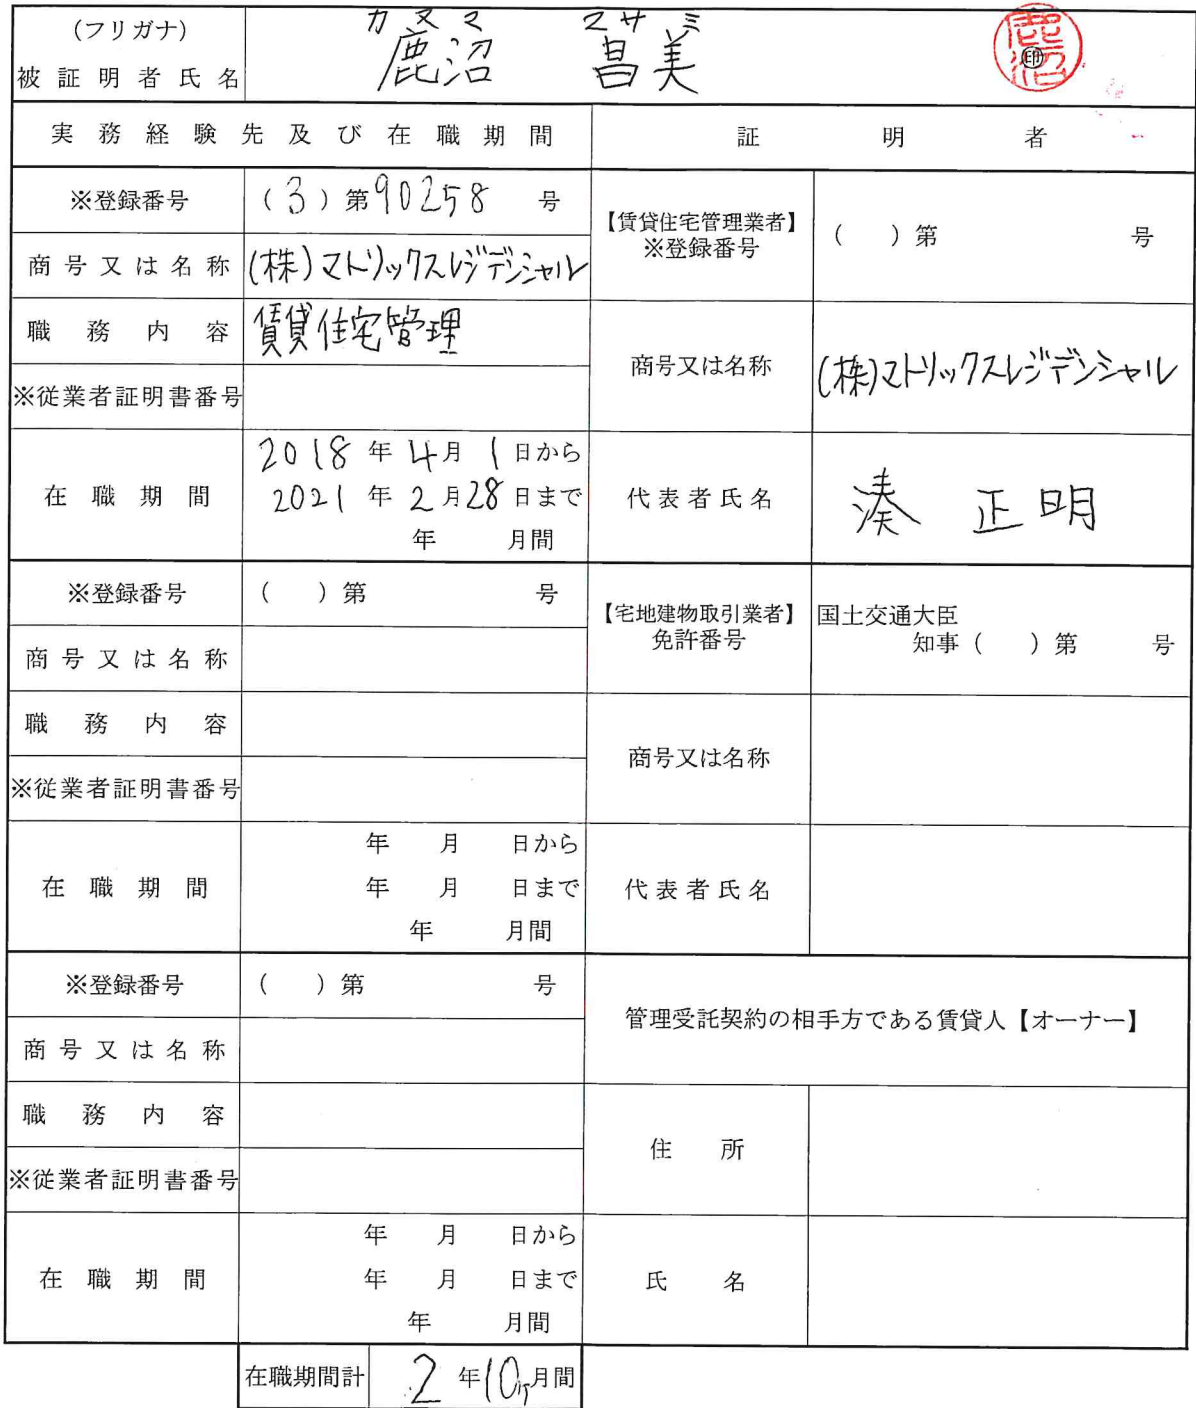 (フリガナ) カヌマ マサミ
被証明者氏名 鹿沼 昌美 鹿沼 印
実務経験先及び在職期間 証明者
※登録番号 (3)第90258号 【賃貸住宅管理業者】※登録番号 ( )第 号
商号又は名称 (株)マトリックスレジデンシャル
職務内容 賃貸住宅管理 商号又は名称 (株)マトリックスレジデンシャル
※従業者証明書番号
在職期間 2018年4月1日から
2021年2月28日まで 代表者氏名 湊 正明
年 月間
※登録番号 ( )第 号 【宅地建物取引業者】免許番号 国土交通大臣
知事( )第 号
商号又は名称
職務内容 商号又は名称
※従業者証明書番号
年 月 日から
在職期間 年 月 日まで 代表者氏名
年 月間
※登録番号 ( )第 号 管理受託契約の相手方である賃貸人【オーナー】
商号又は名称
職務内容 住所
※従業者証明書番号
年 月 日から
在職期間 年 月 日まで 氏名
年 月間
在職期間計 2年10ヶ月間